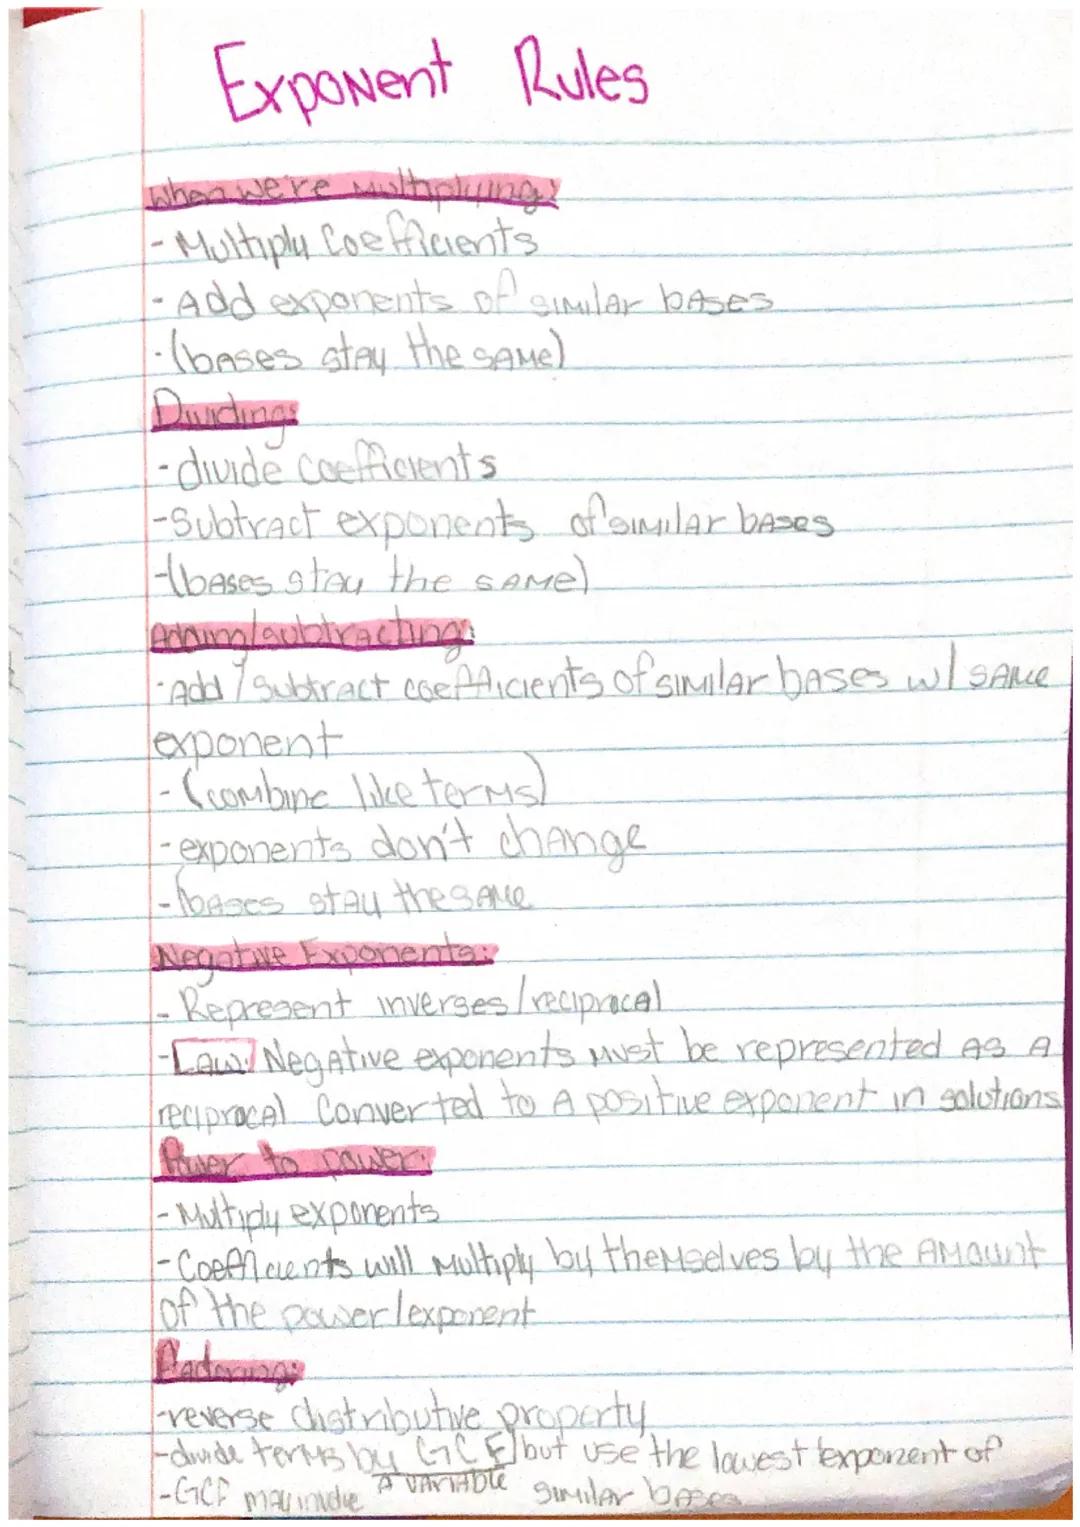 Exponent Rules
When we're multiplying:
- Multiply Coefficients
- Add exponents of similar bases
- (bases stay the same)
Dividing:
- divide coefficients
- Subtract exponents of similar bases
- (bases stay the same)
Adding/subtracting:
- Add / subtract coefficients of similar bases w/ same
exponent
- (combine like terms)
- exponents don't change
- bases stay the same
Negative Exponents:
- Represent inverses/reciprocal
- Law: Negative exponents must be represented as a
reciprocal converted to a positive exponent in solutions
Power to power:
- Multiply exponents
- Coefficients will multiply by themselves by the amount
of the power/exponent
Factoring:
- reverse distributive property
- divide terms by GCF but use the lowest exponent of
similar bases
- GCF may include a variable